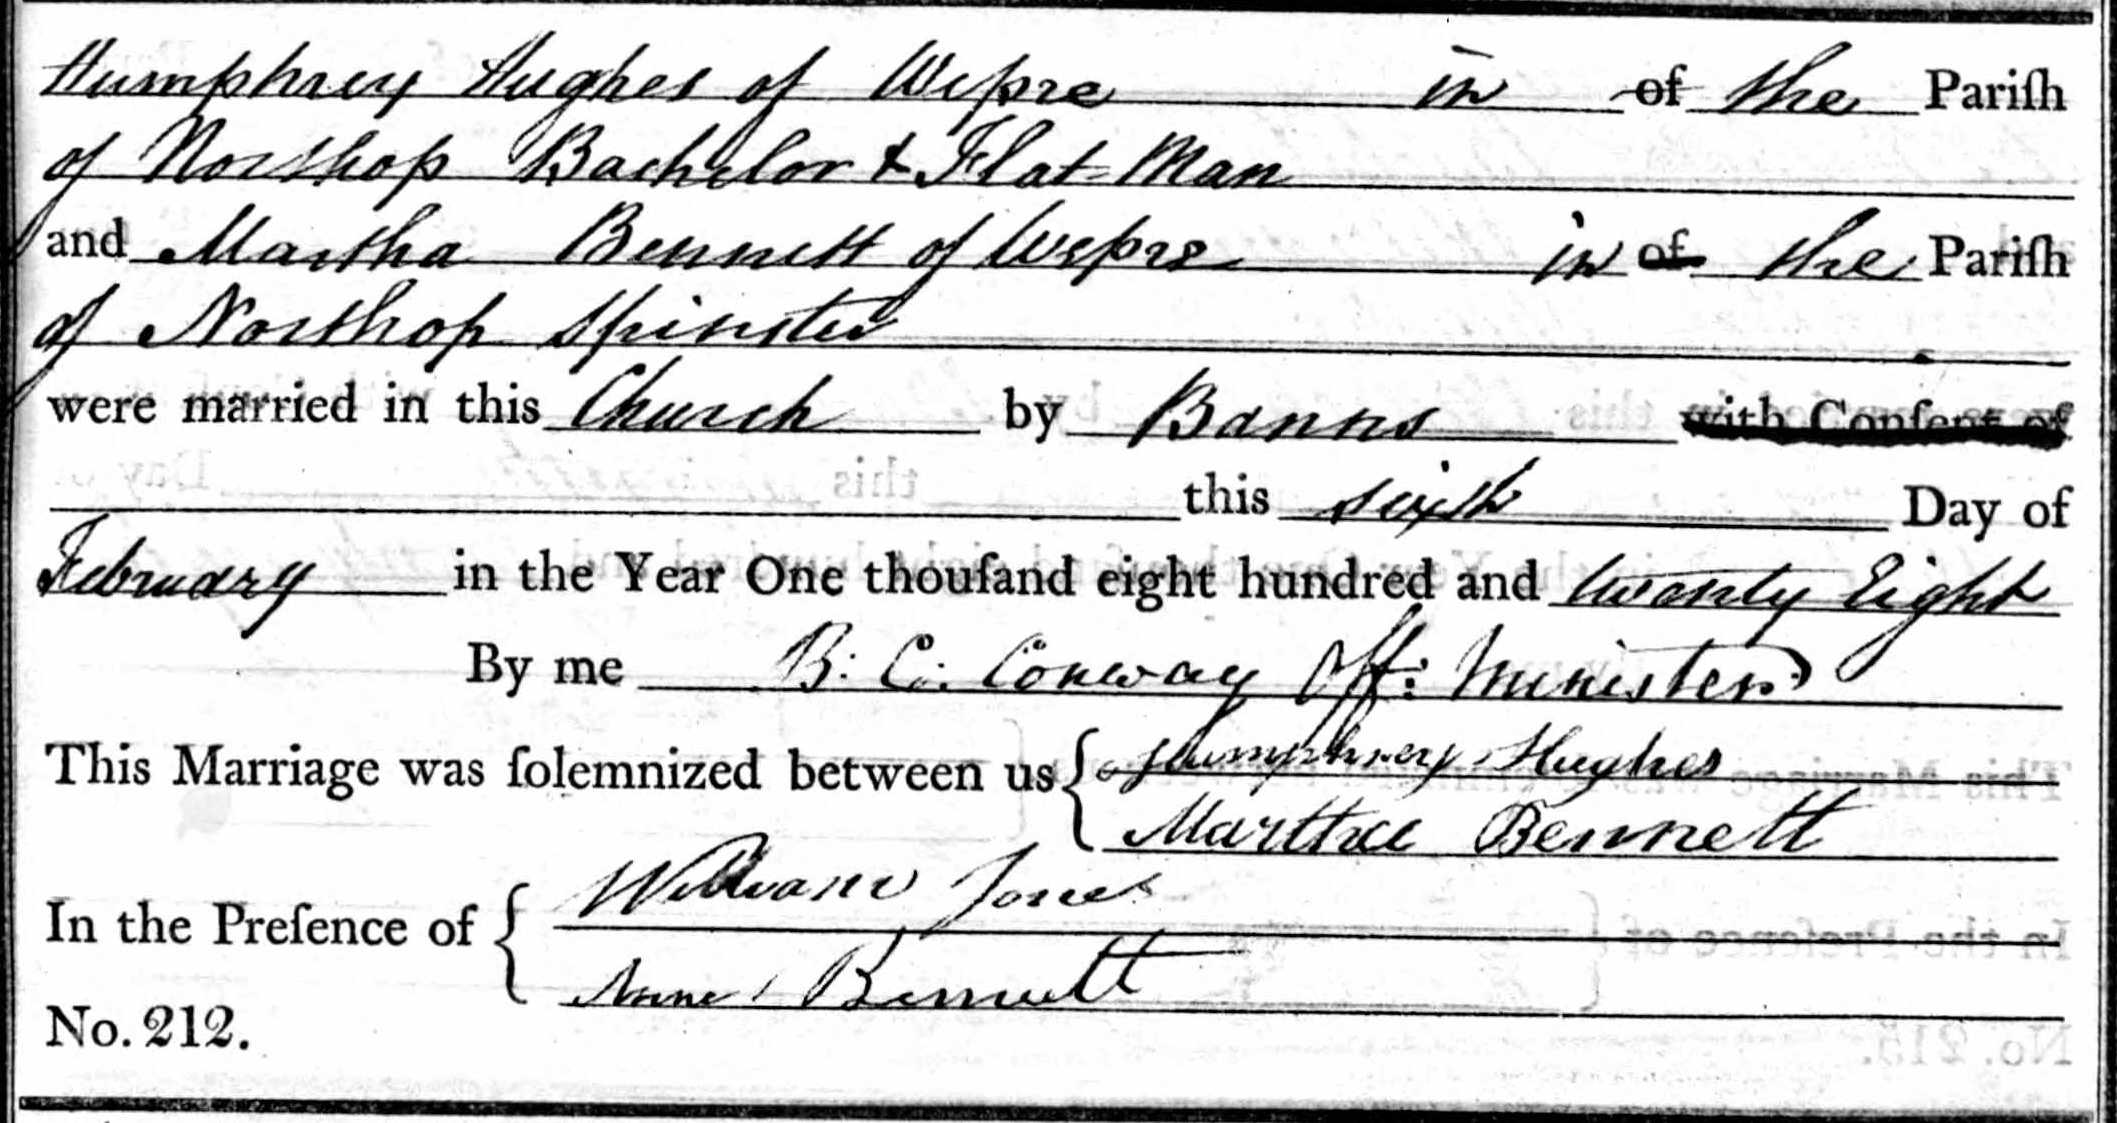 Humphrey Hughes of Wepre in of the Pariſh
of Northop Bachelor & Flat-Man
and Martha Bennett of Wepre in of the Pariſh
of Northop Spinster
were married in this Church by Banns with Conſent of
this sixth Day of
February in the Year One thouſand eight hundred and twenty Eight
By me B: C: Conway Off: Minister
This Marriage was ſolemnized between us Humphrey Hughes
Marttha Bennett
In the Preſence of William Jones
Anne Bennett
No. 212.